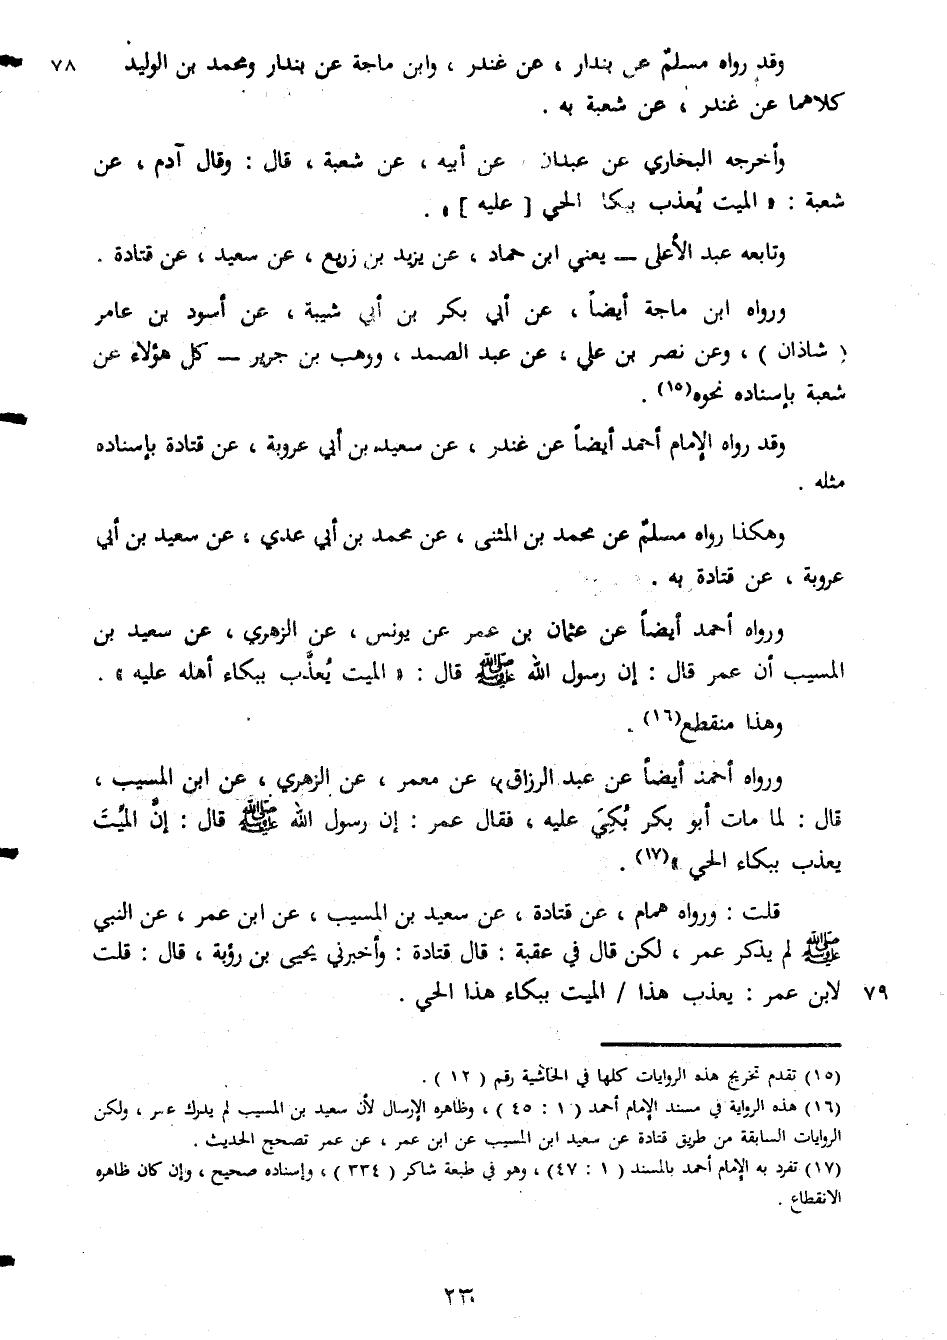 وقد رواه مسلمٌ عن بندار ، عن غندر ، وابن ماجة عن بندار ومحمد بن الوليد ٧٨
كلاهما عن غندر ، عن شعبة به .
وأخرجه البخاري عن عبدان عن أبيه ، عن شعبة ، قال : وقال آدم ، عن
شعبة : « الميت يُعذب ببكا الحي [ عليه ] » .
وتابعه عبد الأعلى — يعني ابن حماد ، عن يزيد بن زريع ، عن سعيد ، عن قتادة .
ورواه ابن ماجة أيضاً ، عن أبي بكر بن أبي شيبة ، عن أسود بن عامر
( شاذان ) ، وعن نصر بن علي ، عن عبد الصمد ، ووهب بن جرير — كل هؤلاء عن
شعبة بإسناده نحوه(١٥) .
وقد رواه الإمام أحمد أيضاً عن غندر ، عن سعيد بن أبي عروبة ، عن قتادة بإسناده
مثله .
وهكذا رواه مسلمٌ عن محمد بن المثنى ، عن محمد بن أبي عدي ، عن سعيد بن أبي
عروبة ، عن قتادة به .
ورواه أحمد أيضاً عن عثمان بن عمر عن يونس ، عن الزهري ، عن سعيد بن
المسيب أن عمر قال : إن رسول الله ﷺ قال : « الميت يُعذَّب ببكاء أهله عليه » .
وهذا منقطع(١٦) .
ورواه أحمد أيضاً عن عبد الرزاق ، عن معمر ، عن الزهري ، عن ابن المسيب ،
قال : لما مات أبو بكر بُكِيَ عليه ، فقال عمر : إن رسول الله ﷺ قال : إنَّ الميِّتَ
يعذب ببكاء الحي »(١٧) .
قلت : ورواه همام ، عن قتادة ، عن سعيد بن المسيب ، عن ابن عمر ، عن النبي
ﷺ لم يذكر عمر ، لكن قال في عقبة : قال قتادة : وأخبرني يحيى بن رؤبة ، قال : قلت
٧٩ لابن عمر : يعذب هذا / الميت ببكاء هذا الحي .
(١٥) تقدم تخريج هذه الروايات كلها في الحاشية رقم ( ١٢ ) .
(١٦) هذه الرواية في مسند الإمام أحمد ( ١ : ٤٥ ) ، وظاهره الإرسال لأن سعيد بن المسيب لم يدرك عمر ، ولكن
الروايات السابقة من طريق قتادة عن سعيد ابن المسيب عن ابن عمر ، عن عمر تصحح الحديث .
(١٧) تفرد به الإمام أحمد بالمسند ( ١ : ٤٧) ، وهو في طبعة شاكر ( ٣٣٤ ) ، وإسناده صحيح ، وإن كان ظاهره
الانقطاع .
٢٣